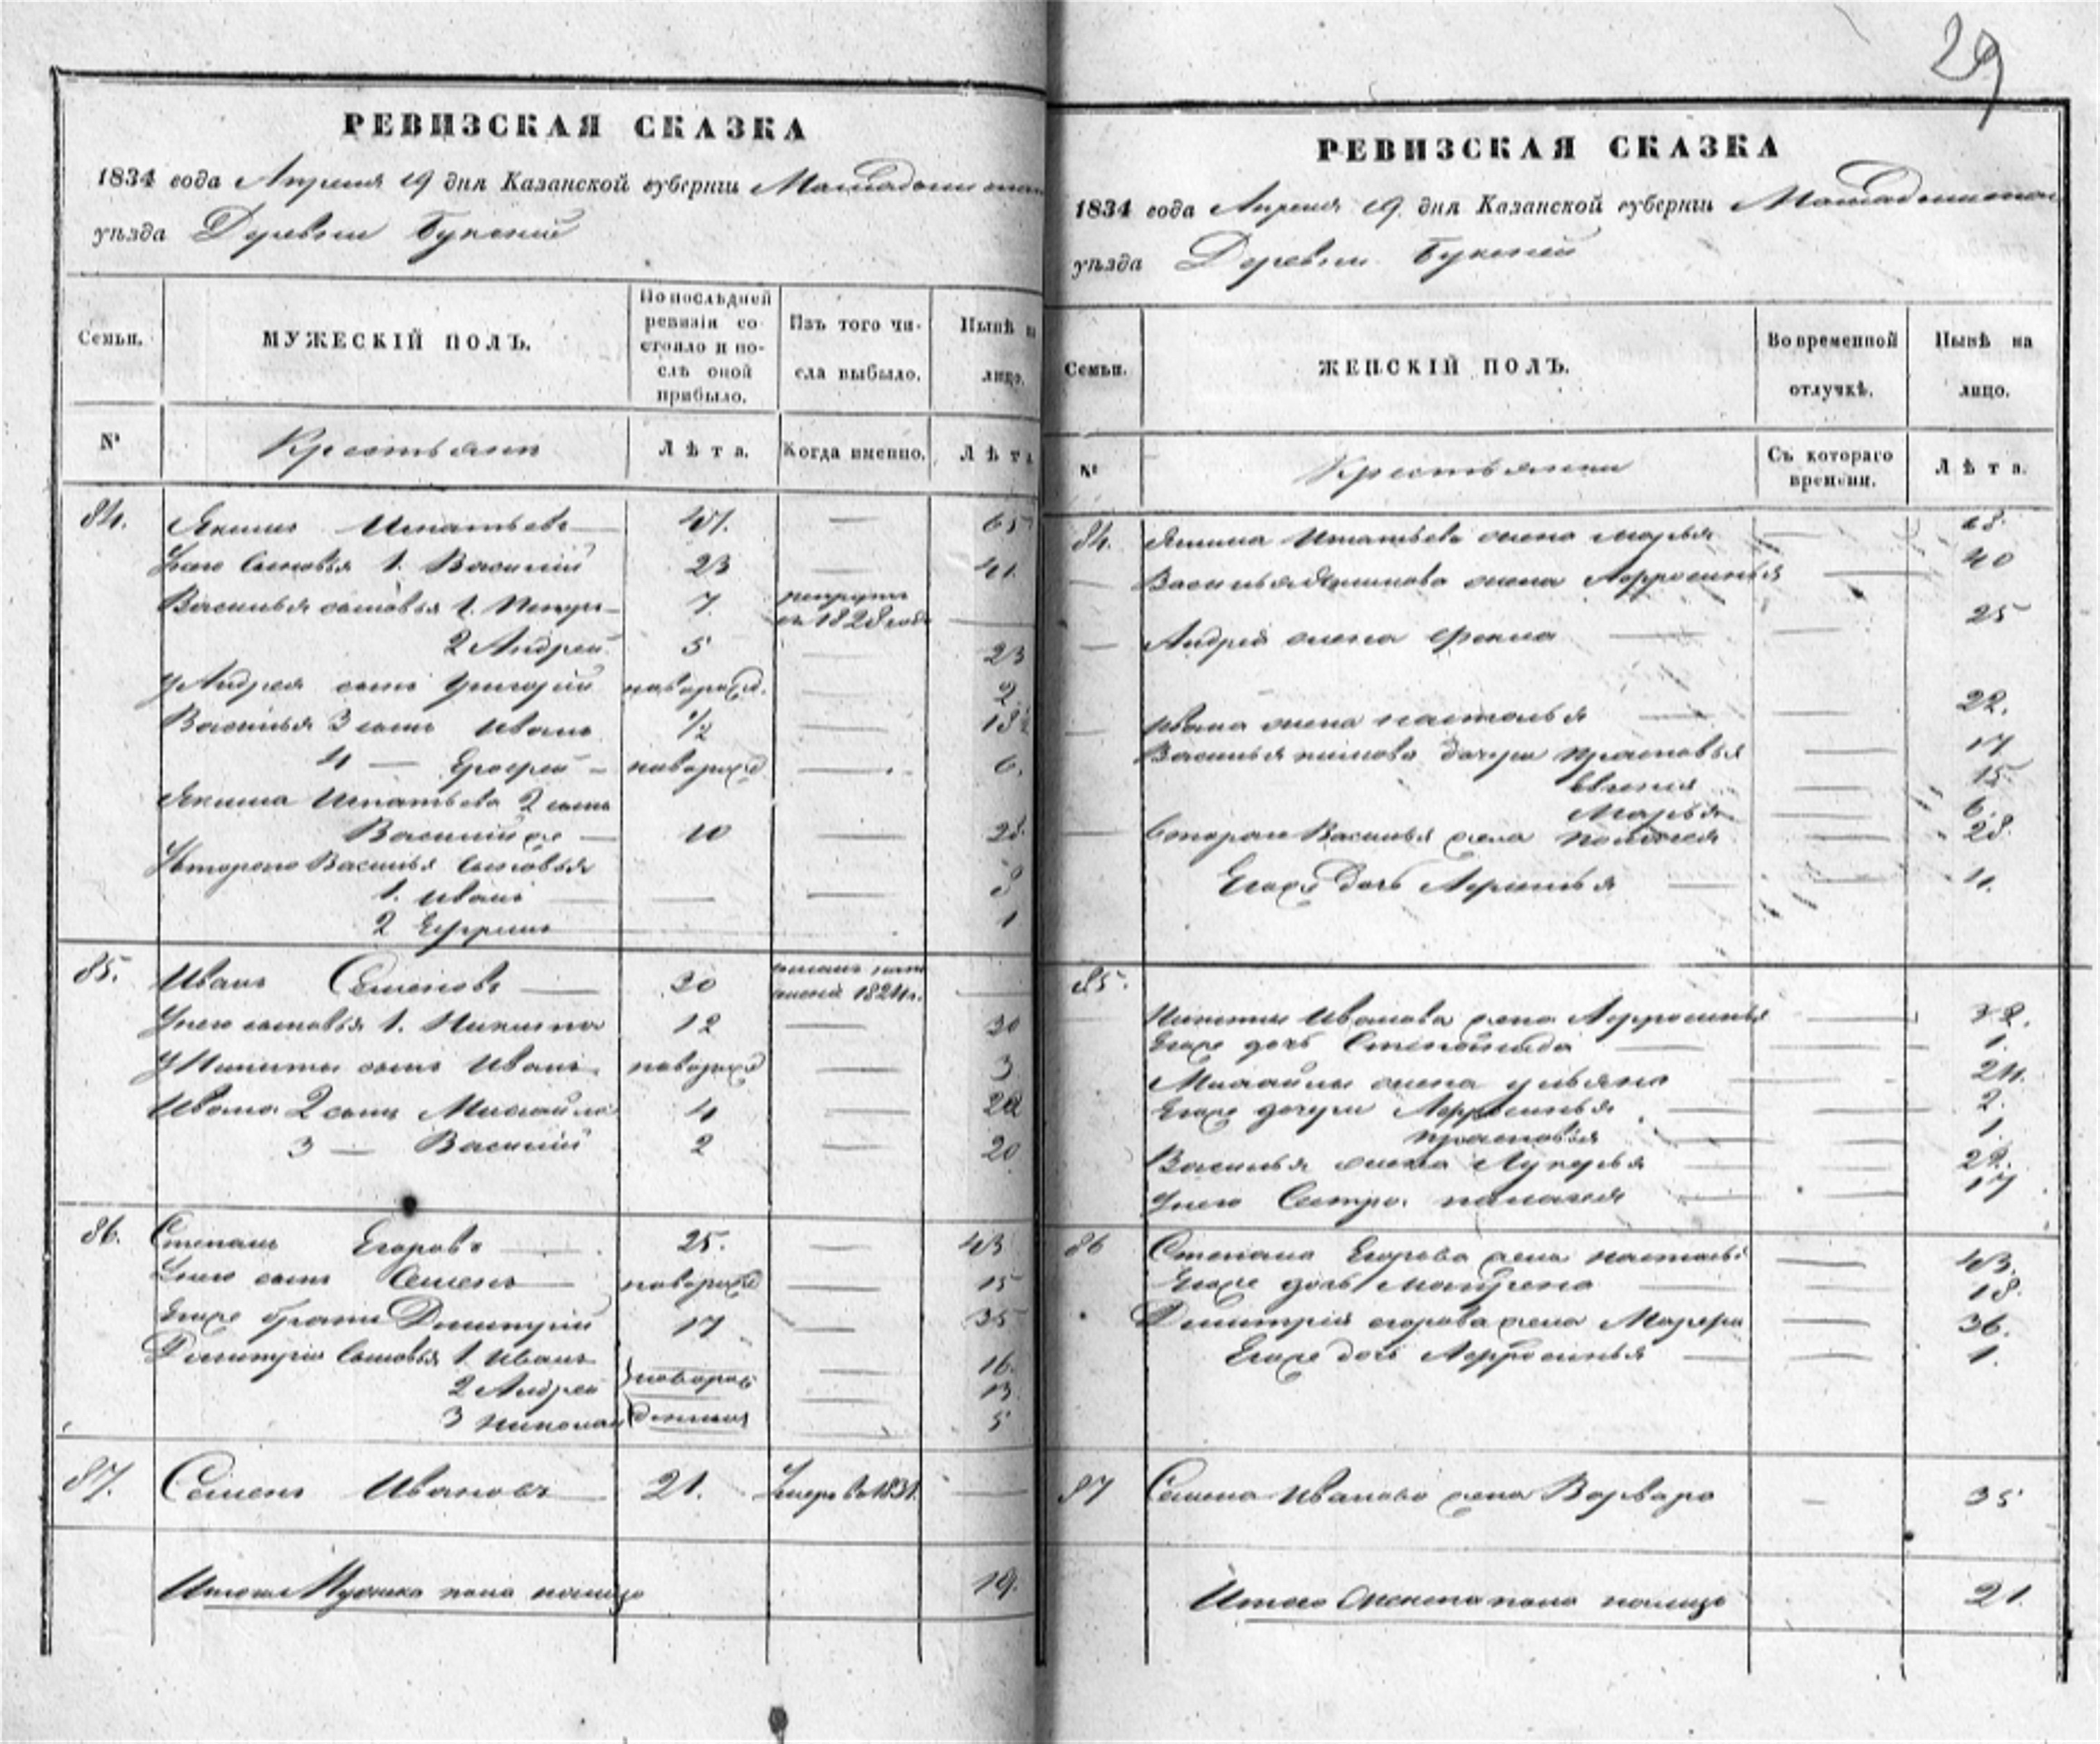 29
РЕВИЗСКАЯ СКАЗКА
1834 года Апреля 19 дня Казанской губернiи
уѣзда Деревни
Семьи.
МУЖЕСКIЙ ПОЛЪ.
По послѣдней ревизiи состояло и послѣ оной прибыло.
Изъ того числа выбыло.
Нынѣ на лицо.
№
Крестьянъ
Лѣта.
Когда именно.
Лѣта
84. Якимъ Игнатьевъ 47. — 65
Унего сыновья 1. Василий 23 — 41.
Василья сыновья 1. Петръ 7. рекрутъ въ 1828 годъ —
2 Андрей 5 — 23
У Андрея сынъ Григорий новорожд. — 2
Василья 3 сынъ Иванъ 1/2 — 18 1/2
4 — Ерофей — новорожд — 6.
Якима Игнатьева 2 сынъ
Василий же — 10 — 28.
Увтораго Василья сыновья
1. Иванъ — — 3
2 Ефримъ 1
85. Иванъ Семеновъ — 30 1824 г. —
Унего сыновья 1. Никита 12 — 30
У Никиты сынъ Иванъ новорожд — 3
Ивана 2 сынъ Михайла 4 — 22
3 — Василий 2 — 20
86. Степанъ Егоровъ 25. — 43
Унего сынъ Семенъ — новорожд — 15
Егоже братъ Димитрий 17 — 35
Димитрия сыновья 1. Иванъ — 16.
2 Андрей новорож — 13.
3 Николай денныя 5
87. Семенъ Ивановъ 21. Умеръ в 1831. —
Итого Мужска пола налицо 19.
РЕВИЗСКАЯ СКАЗКА
1834 года Апреля 19 дня Казанской губернiи
уѣзда Деревни
Семьи.
ЖЕНСКIЙ ПОЛЪ.
Во временной отлучкѣ.
Нынѣ на лицо.
№
Крестьянки
Съ котораго времени.
Лѣта.
84. Якима Игнатьева жена Марья —
Василья Якимова жена Афросинья — 40
— Андрея жена Фекла — — 25
Ивана жена Настасья — — 22.
Василья Якимова дочери Прасковья — 17
Евгения — 15.
Марья — 6.
Втораго Василья жена Пелагея 28.
Егоже дочь Аксинья — 4.
85.
Никиты Иванова жена Афросинья — 32.
Егоже дочь Степанида — 1.
Михайлы жена Ульяна — 24.
Егоже дочери Афросинья — 2.
Прасковья — 1.
Василья жена Лукерья — 22.
Унего Сестра Палагея — 17
86 Степана Егорова жена Настасья — 43.
Егоже дочь Матрена — 18.
Димитрия Егорова жена — 36.
Егоже дочь Афросинья — 1.
87 Семена Иванова жена Варвара — 35
Итого женска пола налицо 21.